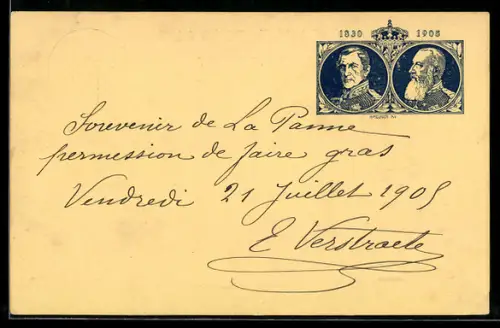 1830 1905
Souvenir de La Panne
permission de faire gras
Vendredi 21 Juillet 1905
E Verstraete